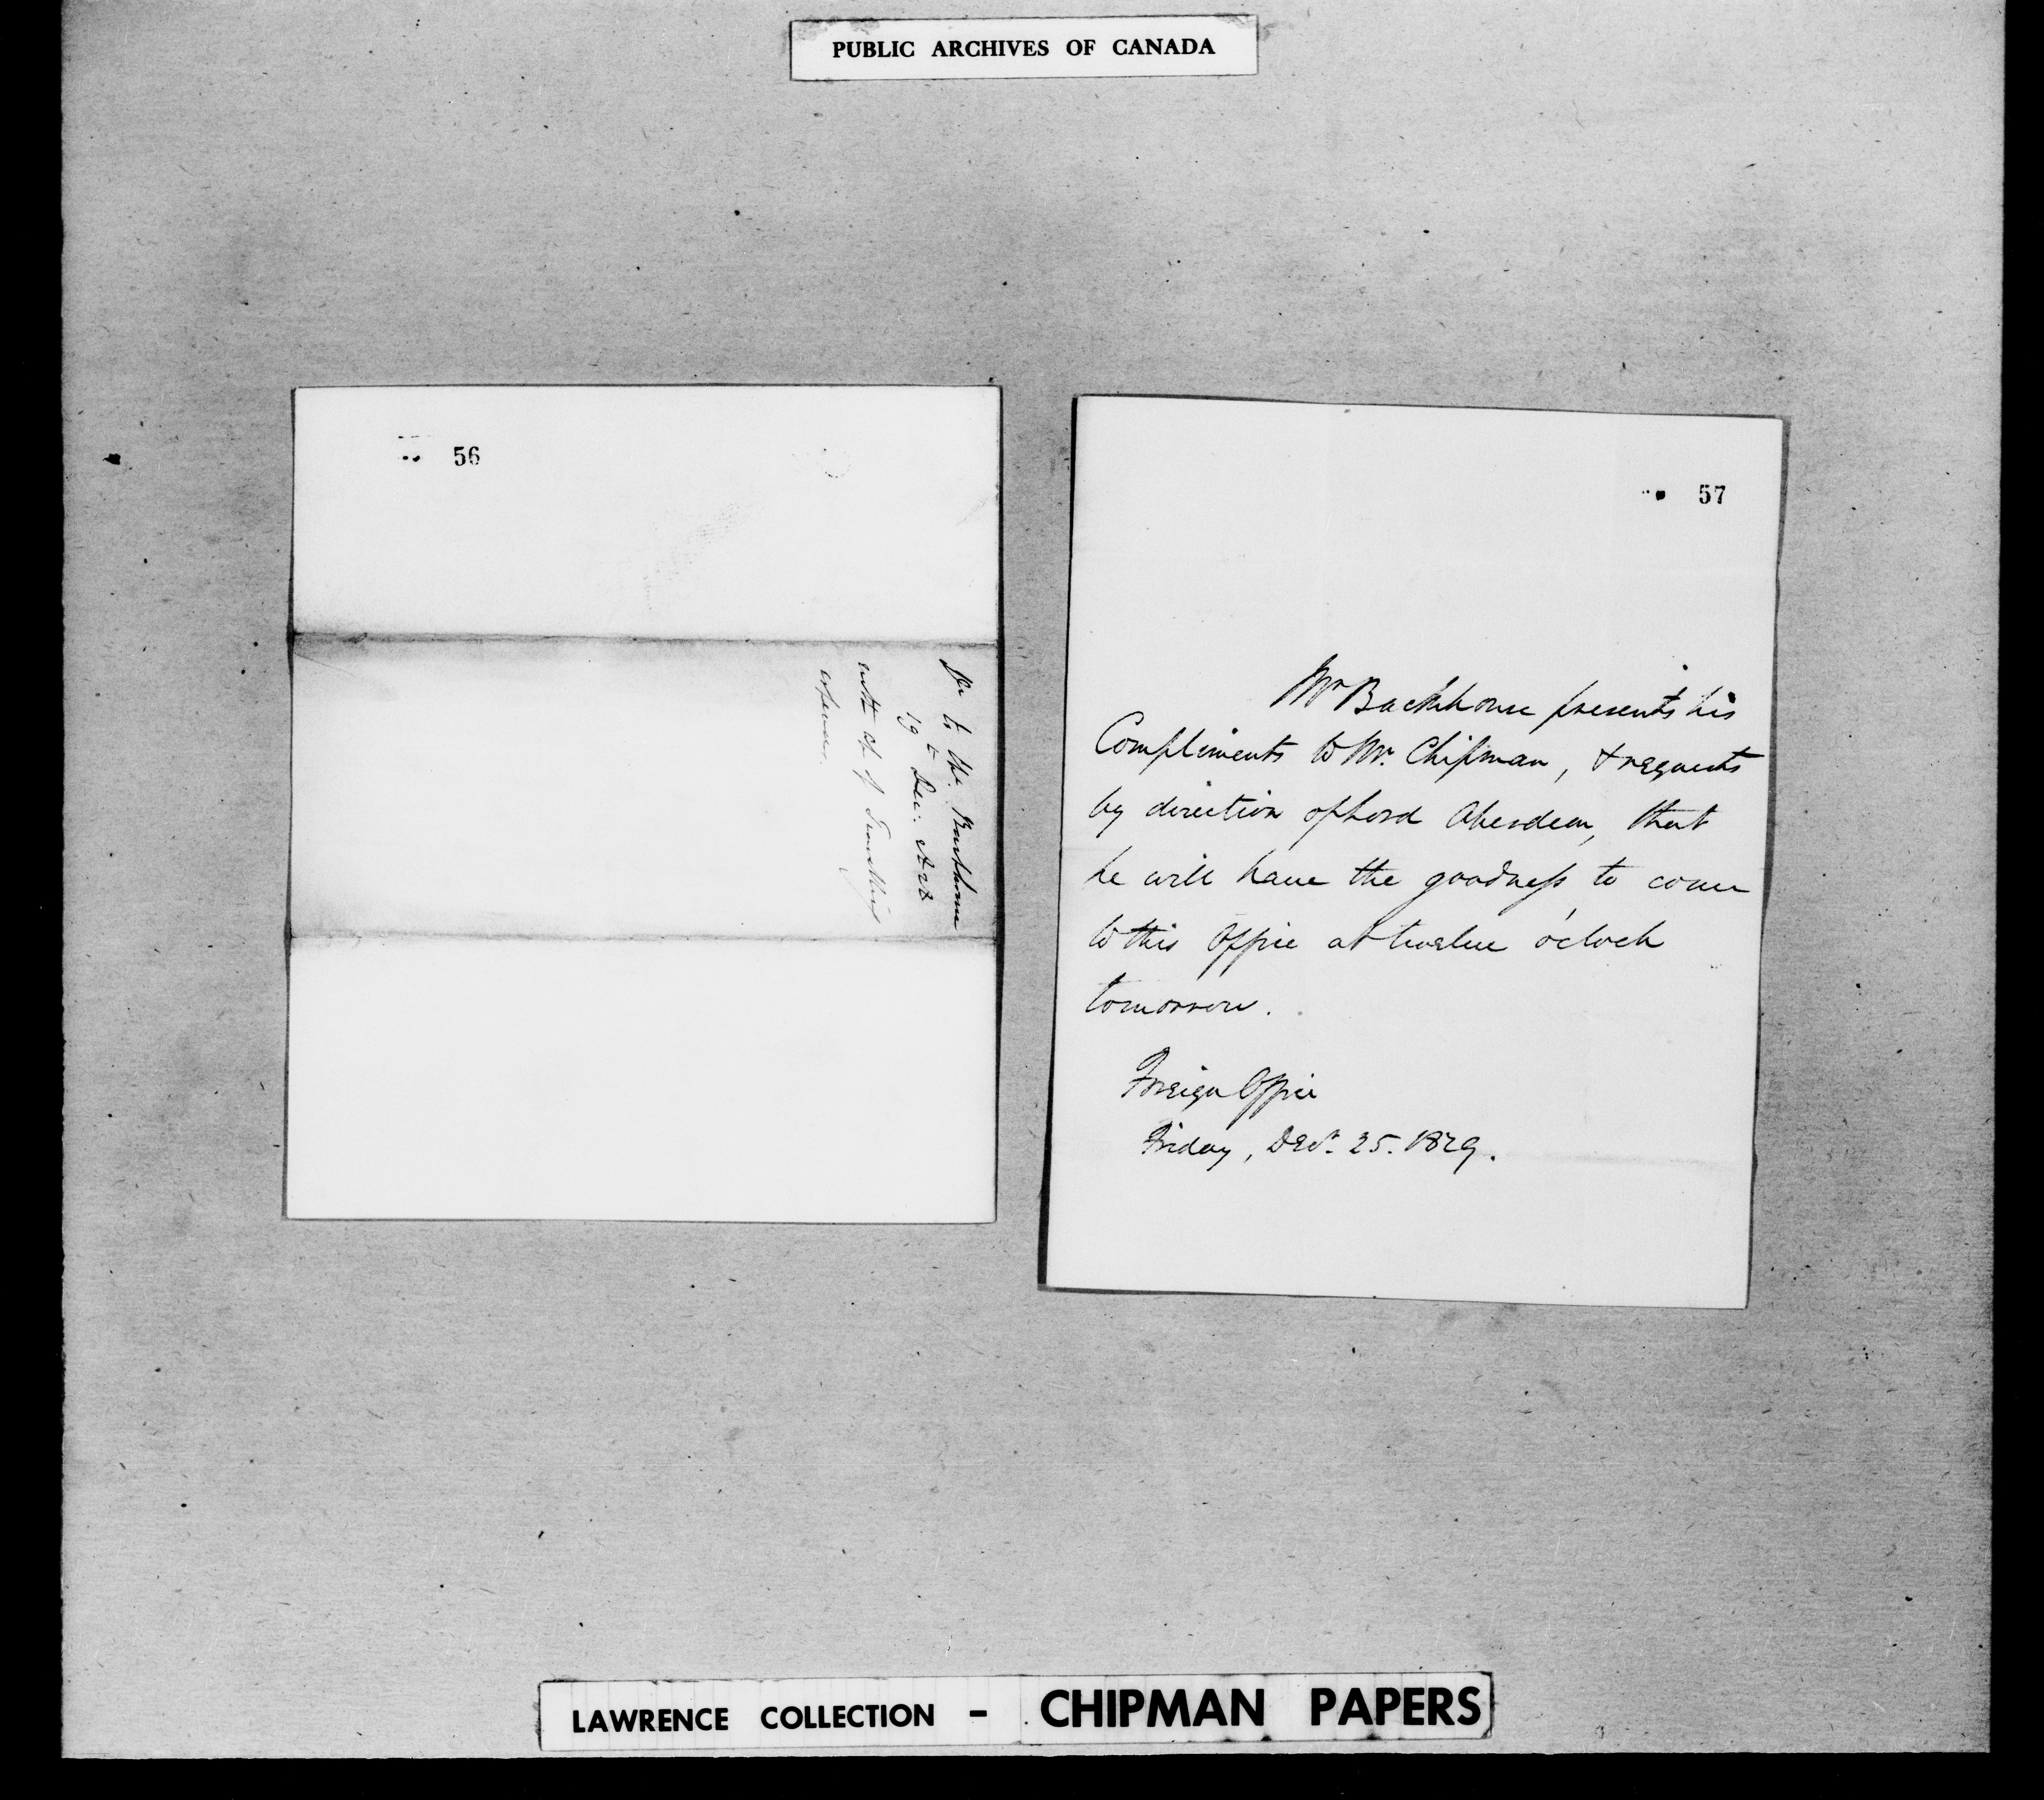 PUBLIC ARCHIVES OF CANADA
56
to Mr. Backhouse
19th Dec: 1828
with of Travelling
expenses.
57
Mr Backhouse presents his
Compliments to Mr. Chipman, & requests
by direction of Lord Aberdeen, that
he will have the goodness to come
to this Office at twelve o'clock
tomorrow.
Foreign Office
Friday, Decr. 25. 1829.
LAWRENCE COLLECTION - CHIPMAN PAPERS